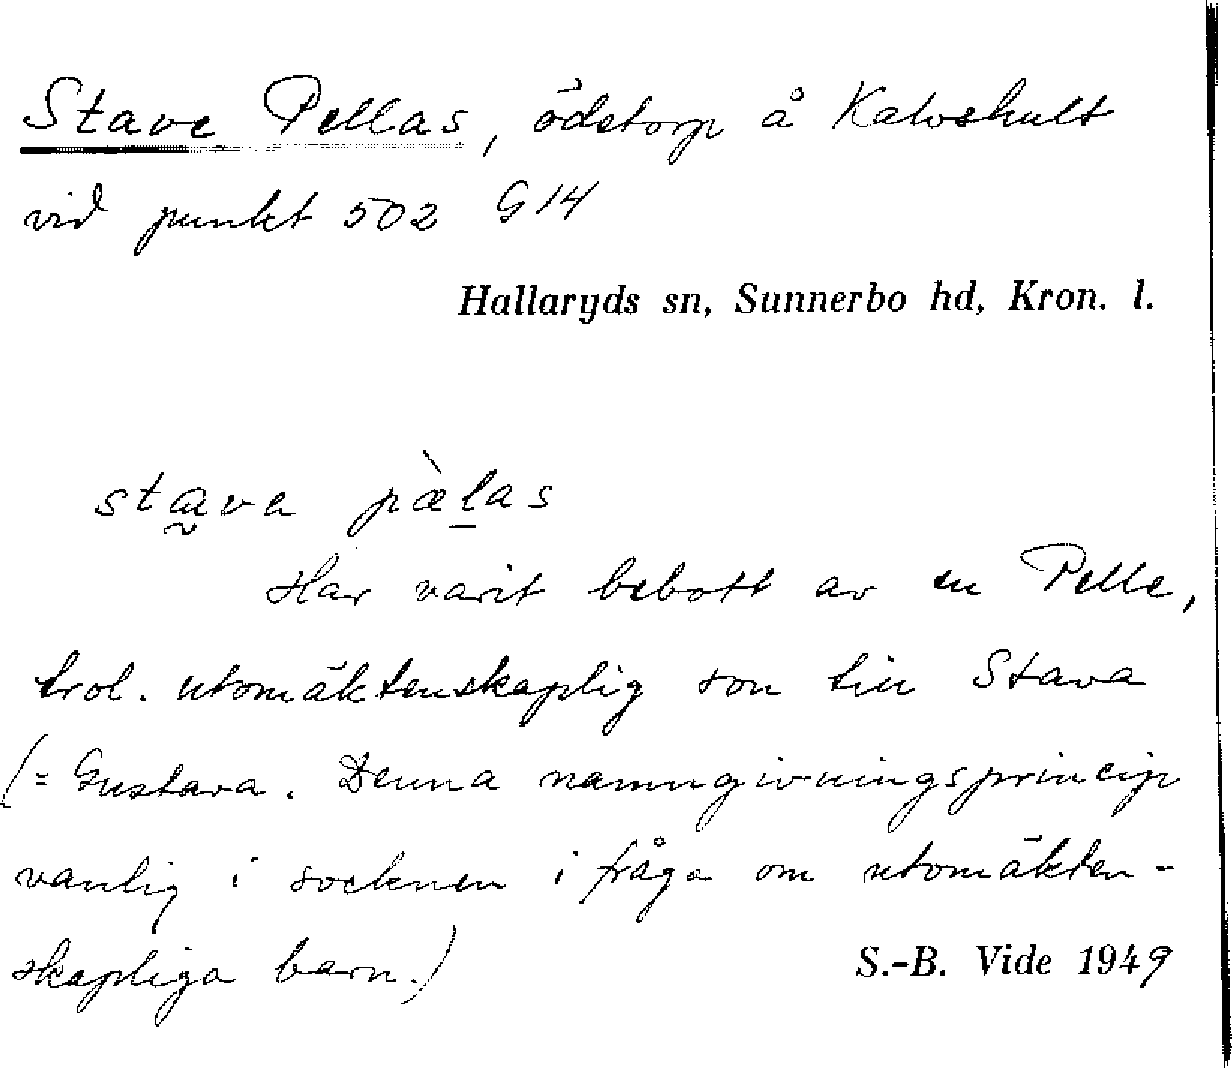 Stave Pellas, ödetorp å Kalvshult
vid punkt 502 G14
Hallaryds sn, Sunnerbo hd, Kron. l.
stava pæ̀las
Har varit bebott av en Pelle,
trol. utomäktenskaplig son till Stava
(= Gustava. Denna namngivningsprincip
vanlig i socknen i fråga om utomäkten-
skapliga barn.)
S.-B. Vide 1949